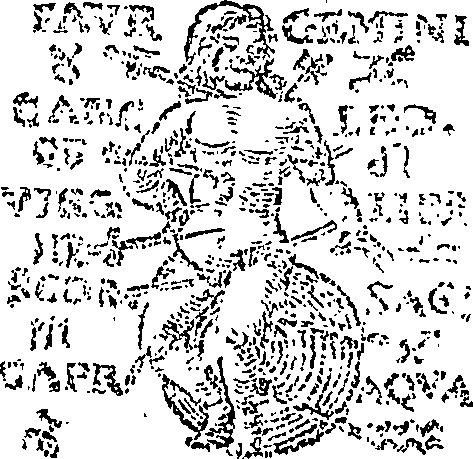 TAVR GEMINI
♉ ♊
CANC LEO.
♋ ♌
VIRG LIB
♍ ♎
SCOR SAG
♏ ♐
CAPR AQVA
♑ ♒